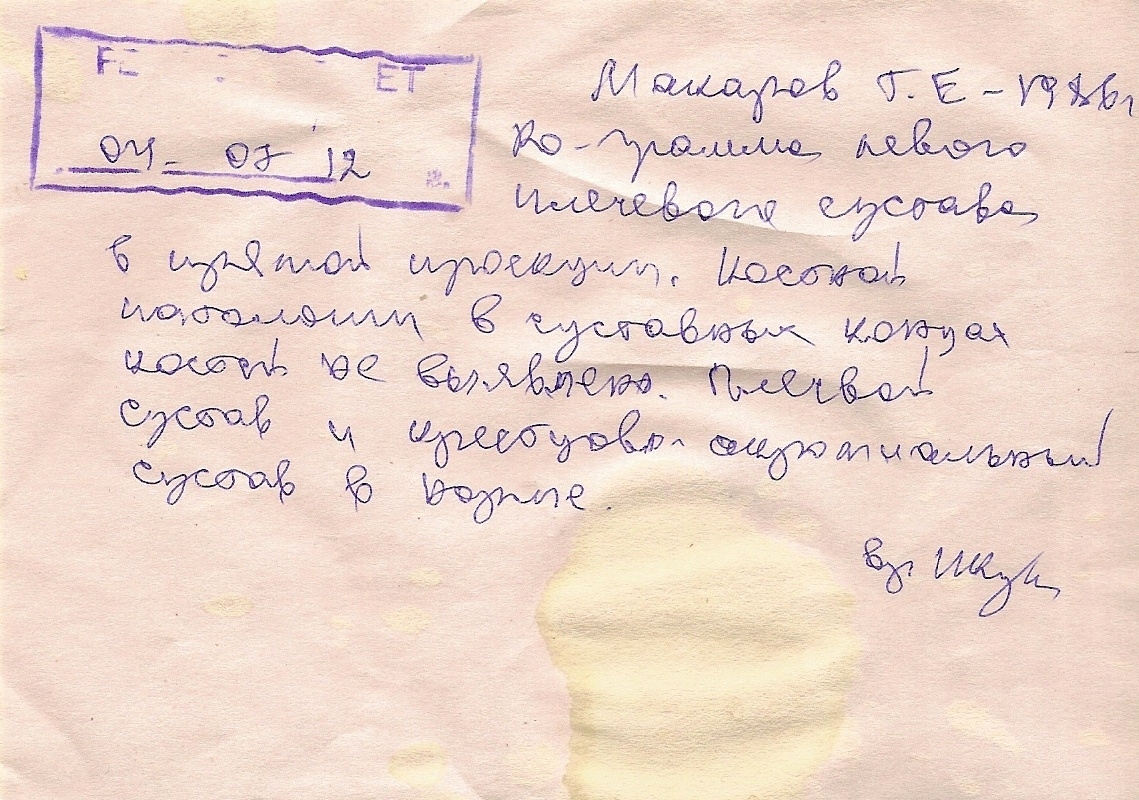 04 07 12
Макаров Г. Е - 1986г
Ro-грамма левого
плечевого сустава
в прямой проекции. Костной
патологии в суставных концах
костей не выявлено. Плечвой
сустав и
сустав в норме.
вр.